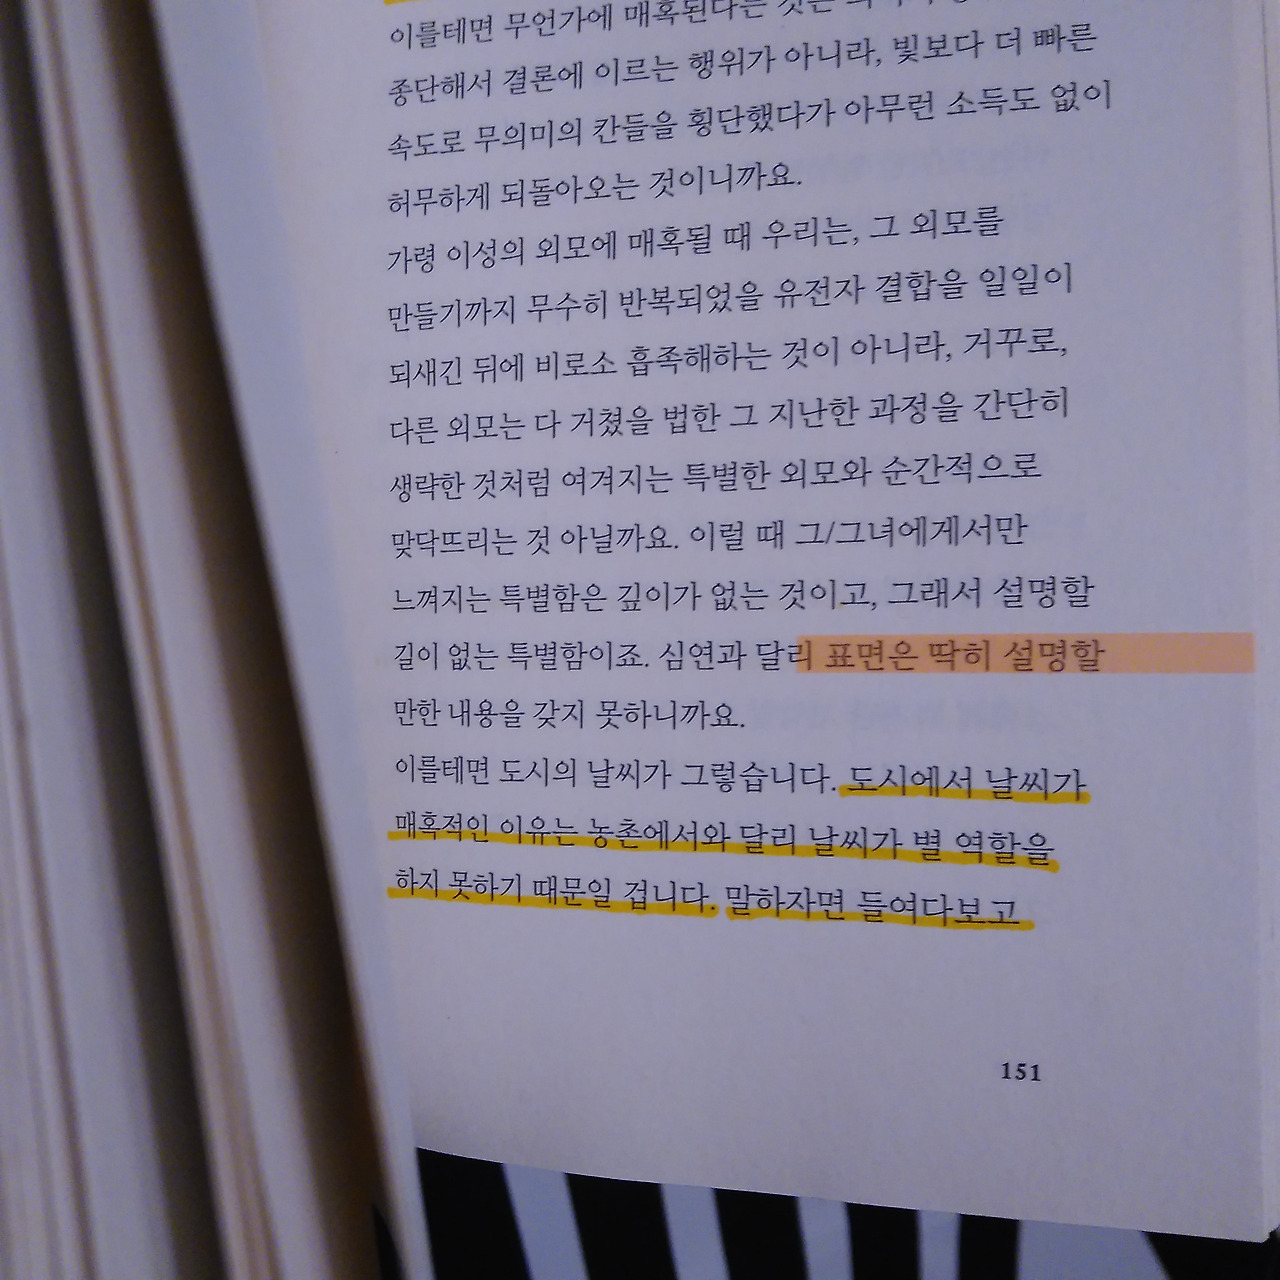 이를테면 무언가에 매혹된다는 것은
종단해서 결론에 이르는 행위가 아니라, 빛보다 더 빠른
속도로 무의미의 칸들을 횡단했다가 아무런 소득도 없이
허무하게 되돌아오는 것이니까요.
가령 이성의 외모에 매혹될 때 우리는, 그 외모를
만들기까지 무수히 반복되었을 유전자 결합을 일일이
되새긴 뒤에 비로소 흡족해하는 것이 아니라, 거꾸로,
다른 외모는 다 거쳤을 법한 그 지난한 과정을 간단히
생략한 것처럼 여겨지는 특별한 외모와 순간적으로
맞닥뜨리는 것 아닐까요. 이럴 때 그/그녀에게서만
느껴지는 특별함은 깊이가 없는 것이고, 그래서 설명할
길이 없는 특별함이죠. 심연과 달리 표면은 딱히 설명할
만한 내용을 갖지 못하니까요.
이를테면 도시의 날씨가 그렇습니다. 도시에서 날씨가
매혹적인 이유는 농촌에서와 달리 날씨가 별 역할을
하지 못하기 때문일 겁니다. 말하자면 들여다보고
151